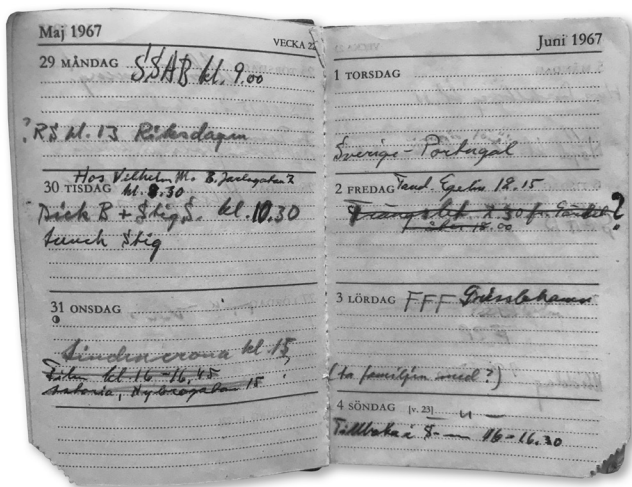 Maj 1967
VECKA 22
29 MÅNDAG SSAB kl. 9.00
? RS kl. 13 Riksdagen
Hos Vilhelm M. B.
30 TISDAG kl. 8.30
Dick B + Stig S. kl. 10.30
Lunch Stig
31 ONSDAG
Lindencrona kl. 15
Film kl. 16-16.45
Astoria, Nybrogatan 15
Juni 1967
1 TORSDAG
Sverige - Portugal
2 FREDAG Tand. 12.15
Trängslet 7.30 fr. ?
åter 18.00
3 LÖRDAG FFF Grisslehamn
(ta familjen med?)
4 SÖNDAG [v. 23] — " —
Tillbaka S— 16-16.30